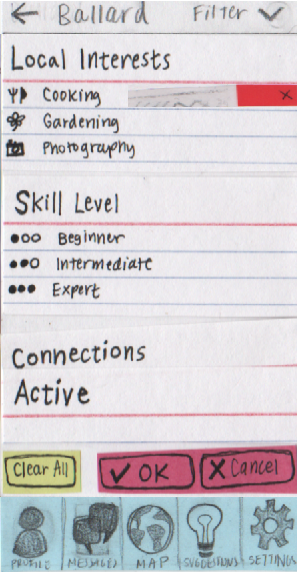 Ballard Filter
Local Interests
Cooking
Gardening
Photography
Skill Level
Beginner
Intermediate
Expert
Connections
Active
Clear All OK X Cancel
PROFILE MESSAGES MAP SUGGESTIONS SETTINGS